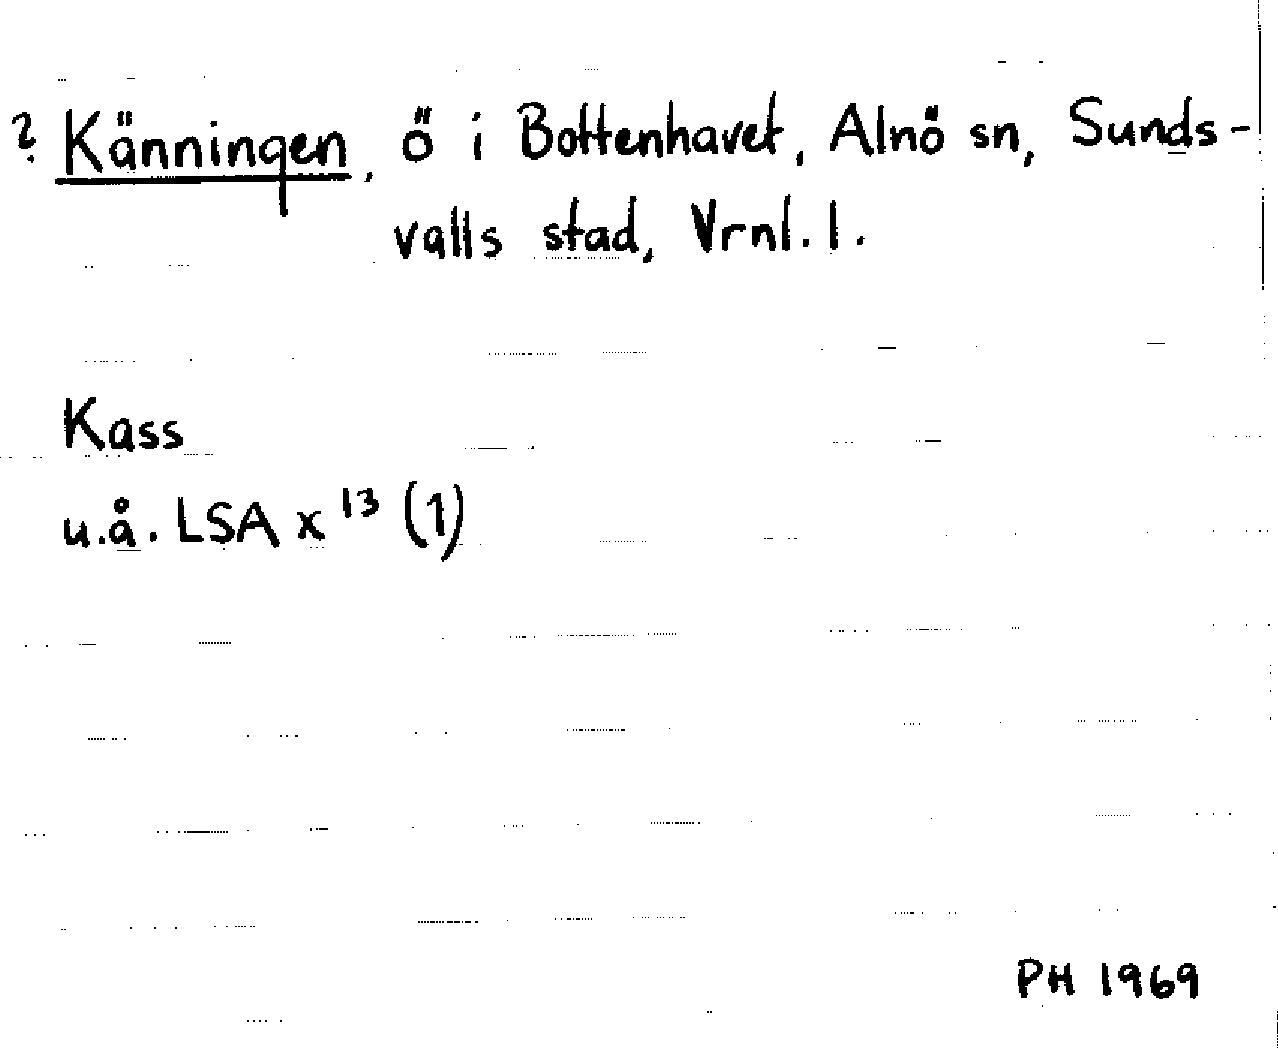 ? Känningen, ö i Bottenhavet, Alnö sn, Sunds-
valls stad, Vrnl. l.
Kass
u.å. LSA x 13 (1)
PH 1969